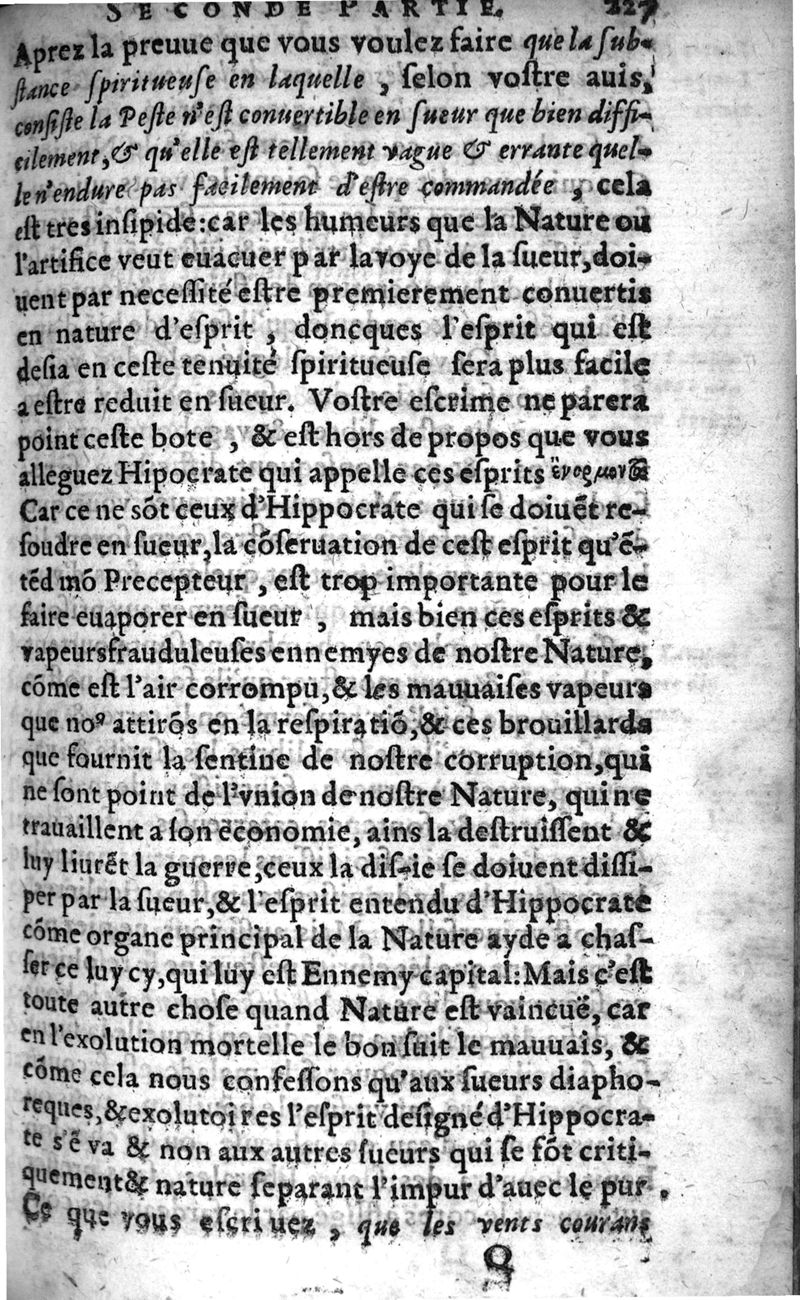 SECONDE PARTIE. 227
Aprez la preuue que vous voulez faire que la ſub-
ſtance ſpiritueuſe en laquelle , ſelon voſtre auis,
conſiſte la Peſte n'eſt conuertible en ſueur que bien diffi-
cilement,& qu'elle eſt tellement vague & errante quel-
le n'endure pas facilement d'eſtre commandée , cela
eſt tres inſipide:car les humeurs que la Nature ou
l'artifice veut euacuer par la voye de la ſueur,doi-
uent par neceſſité eſtre premierement conuertis
en nature d'eſprit , doncques l'eſprit qui eſt
deſia en ceſte tenuité ſpiritueuſe ſera plus facile
a eſtre reduit en ſueur. Voſtre eſcrime ne parera
point ceſte bote , & eſt hors de propos que vous
alleguez Hipocrate qui appelle ces eſprits
Car ce ne sõt ceux d'Hippocrate qui ſe doiuẽt re-
ſoudre en ſueur,la cõſeruation de ceſt eſprit qu'ẽ-
tẽd mõ Precepteur , eſt trop importante pour le
faire euaporer en ſueur , mais bien ces eſprits &
vapeursfrauduleuſes ennemyes de noſtre Nature,
cõme eſt l'air corrompu,& les mauuaiſes vapeurs
que noꝰ attirõs en la reſpiratiõ,& ces brouillards
que fournit la ſentine de noſtre corruption,qui
ne ſont point de l'vnion de noſtre Nature, qui ne
trauaillent a ſon economie, ains la deſtruiſſent &
luy liurẽt la guerre,ceux la diſ-ie ſe doiuent diſſi-
per par la ſueur,& l'eſprit entendu d'Hippocrate
cõme organe principal de la Nature ayde a chaſ-
ſer ce luy cy,qui luy eſt Ennemy capital:Mais c'eſt
toute autre choſe quand Nature eſt vaincuë, car
en l'exolution mortelle le bon ſuit le mauuais, &
cõme cela nous confeſſons qu'aux ſueurs diapho-
reques,&exolutoires l'eſprit deſigné d'Hippocra-
te s'ẽ va & non aux autres ſueurs qui ſe fõt criti-
quement& nature ſeparant l'impur d'auec le pur .
Ce que vous eſcriuez , que les vents courans